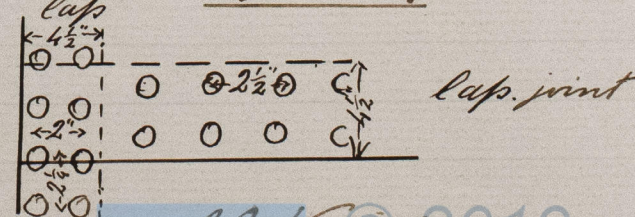 lap
4½"
2½"
4½"
lap. joint
2"
2¼"
© 2019